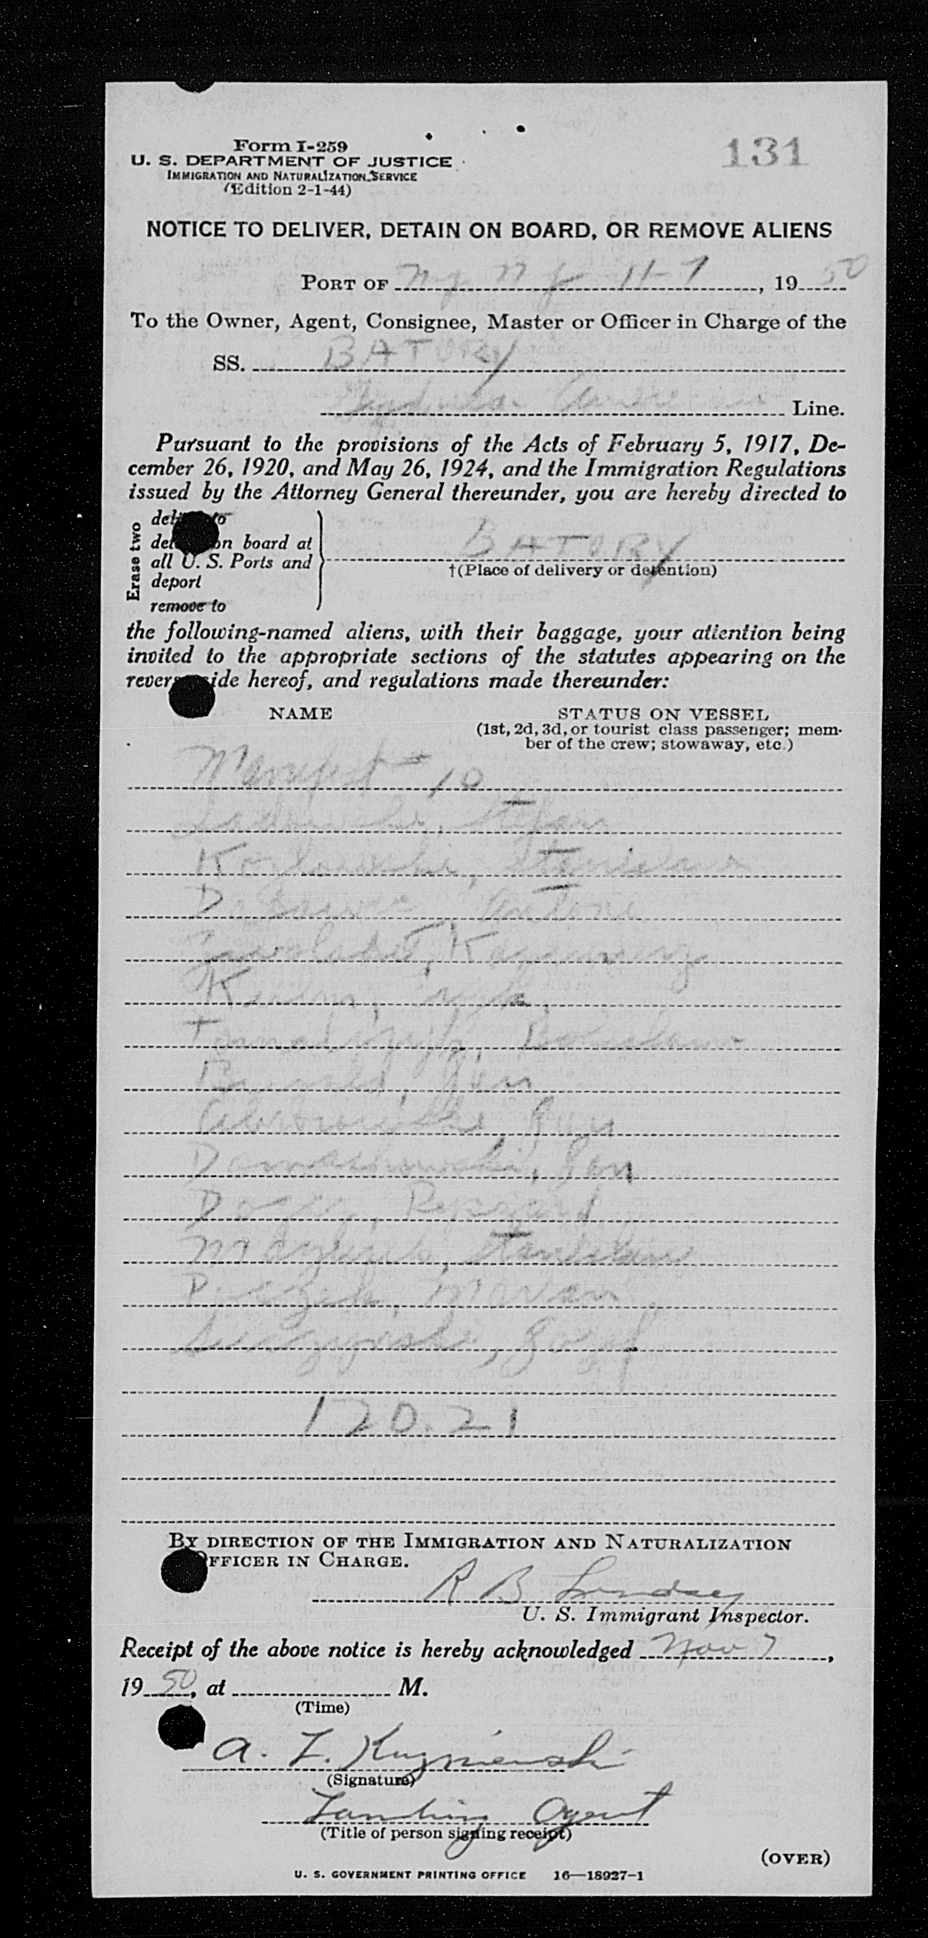 Form I-259
131
U. S. DEPARTMENT OF JUSTICE
IMMIGRATION AND NATURALIZATION SERVICE
(Edition 2-1-44)
NOTICE TO DELIVER, DETAIN ON BOARD, OR REMOVE ALIENS
PORT OF N.Y. N Y 11-7, 1950
To the Owner, Agent, Consignee, Master or Officer in Charge of the
SS. BATORY
Gydnia American Line.
Pursuant to the provisions of the Acts of February 5, 1917, De-
cember 26, 1920, and May 26, 1924, and the Immigration Regulations
issued by the Attorney General thereunder, you are hereby directed to
Erase two
to
on board at
all U. S. Ports and
deport
remove to
BATORY
†(Place of delivery or detention)
the following-named aliens, with their baggage, your attention being
invited to the appropriate sections of the statutes appearing on the
hereof, and regulations made thereunder:
NAME
STATUS ON VESSEL
(1st, 2d, 3d, or tourist class passenger; mem-
ber of the crew; stowaway, etc.)
Manifest # 10
Stefan
Kozlowski, Stanislaw
Antoni
Kazimierz
Jan
Jan
Domachowski, Jan
Ryszard
Mazurek, Stanislaw
Marian
Jozef
120.21
BY DIRECTION OF THE IMMIGRATION AND NATURALIZATION
OFFICER IN CHARGE.
R B Lindsey
U. S. Immigrant Inspector.
Receipt of the above notice is hereby acknowledged Nov 7,
1950, at M.
(Time)
A. Z.
(Signature)
Landing Agent
(Title of person signing receipt)
(OVER)
U. S. GOVERNMENT PRINTING OFFICE 16—18927-1